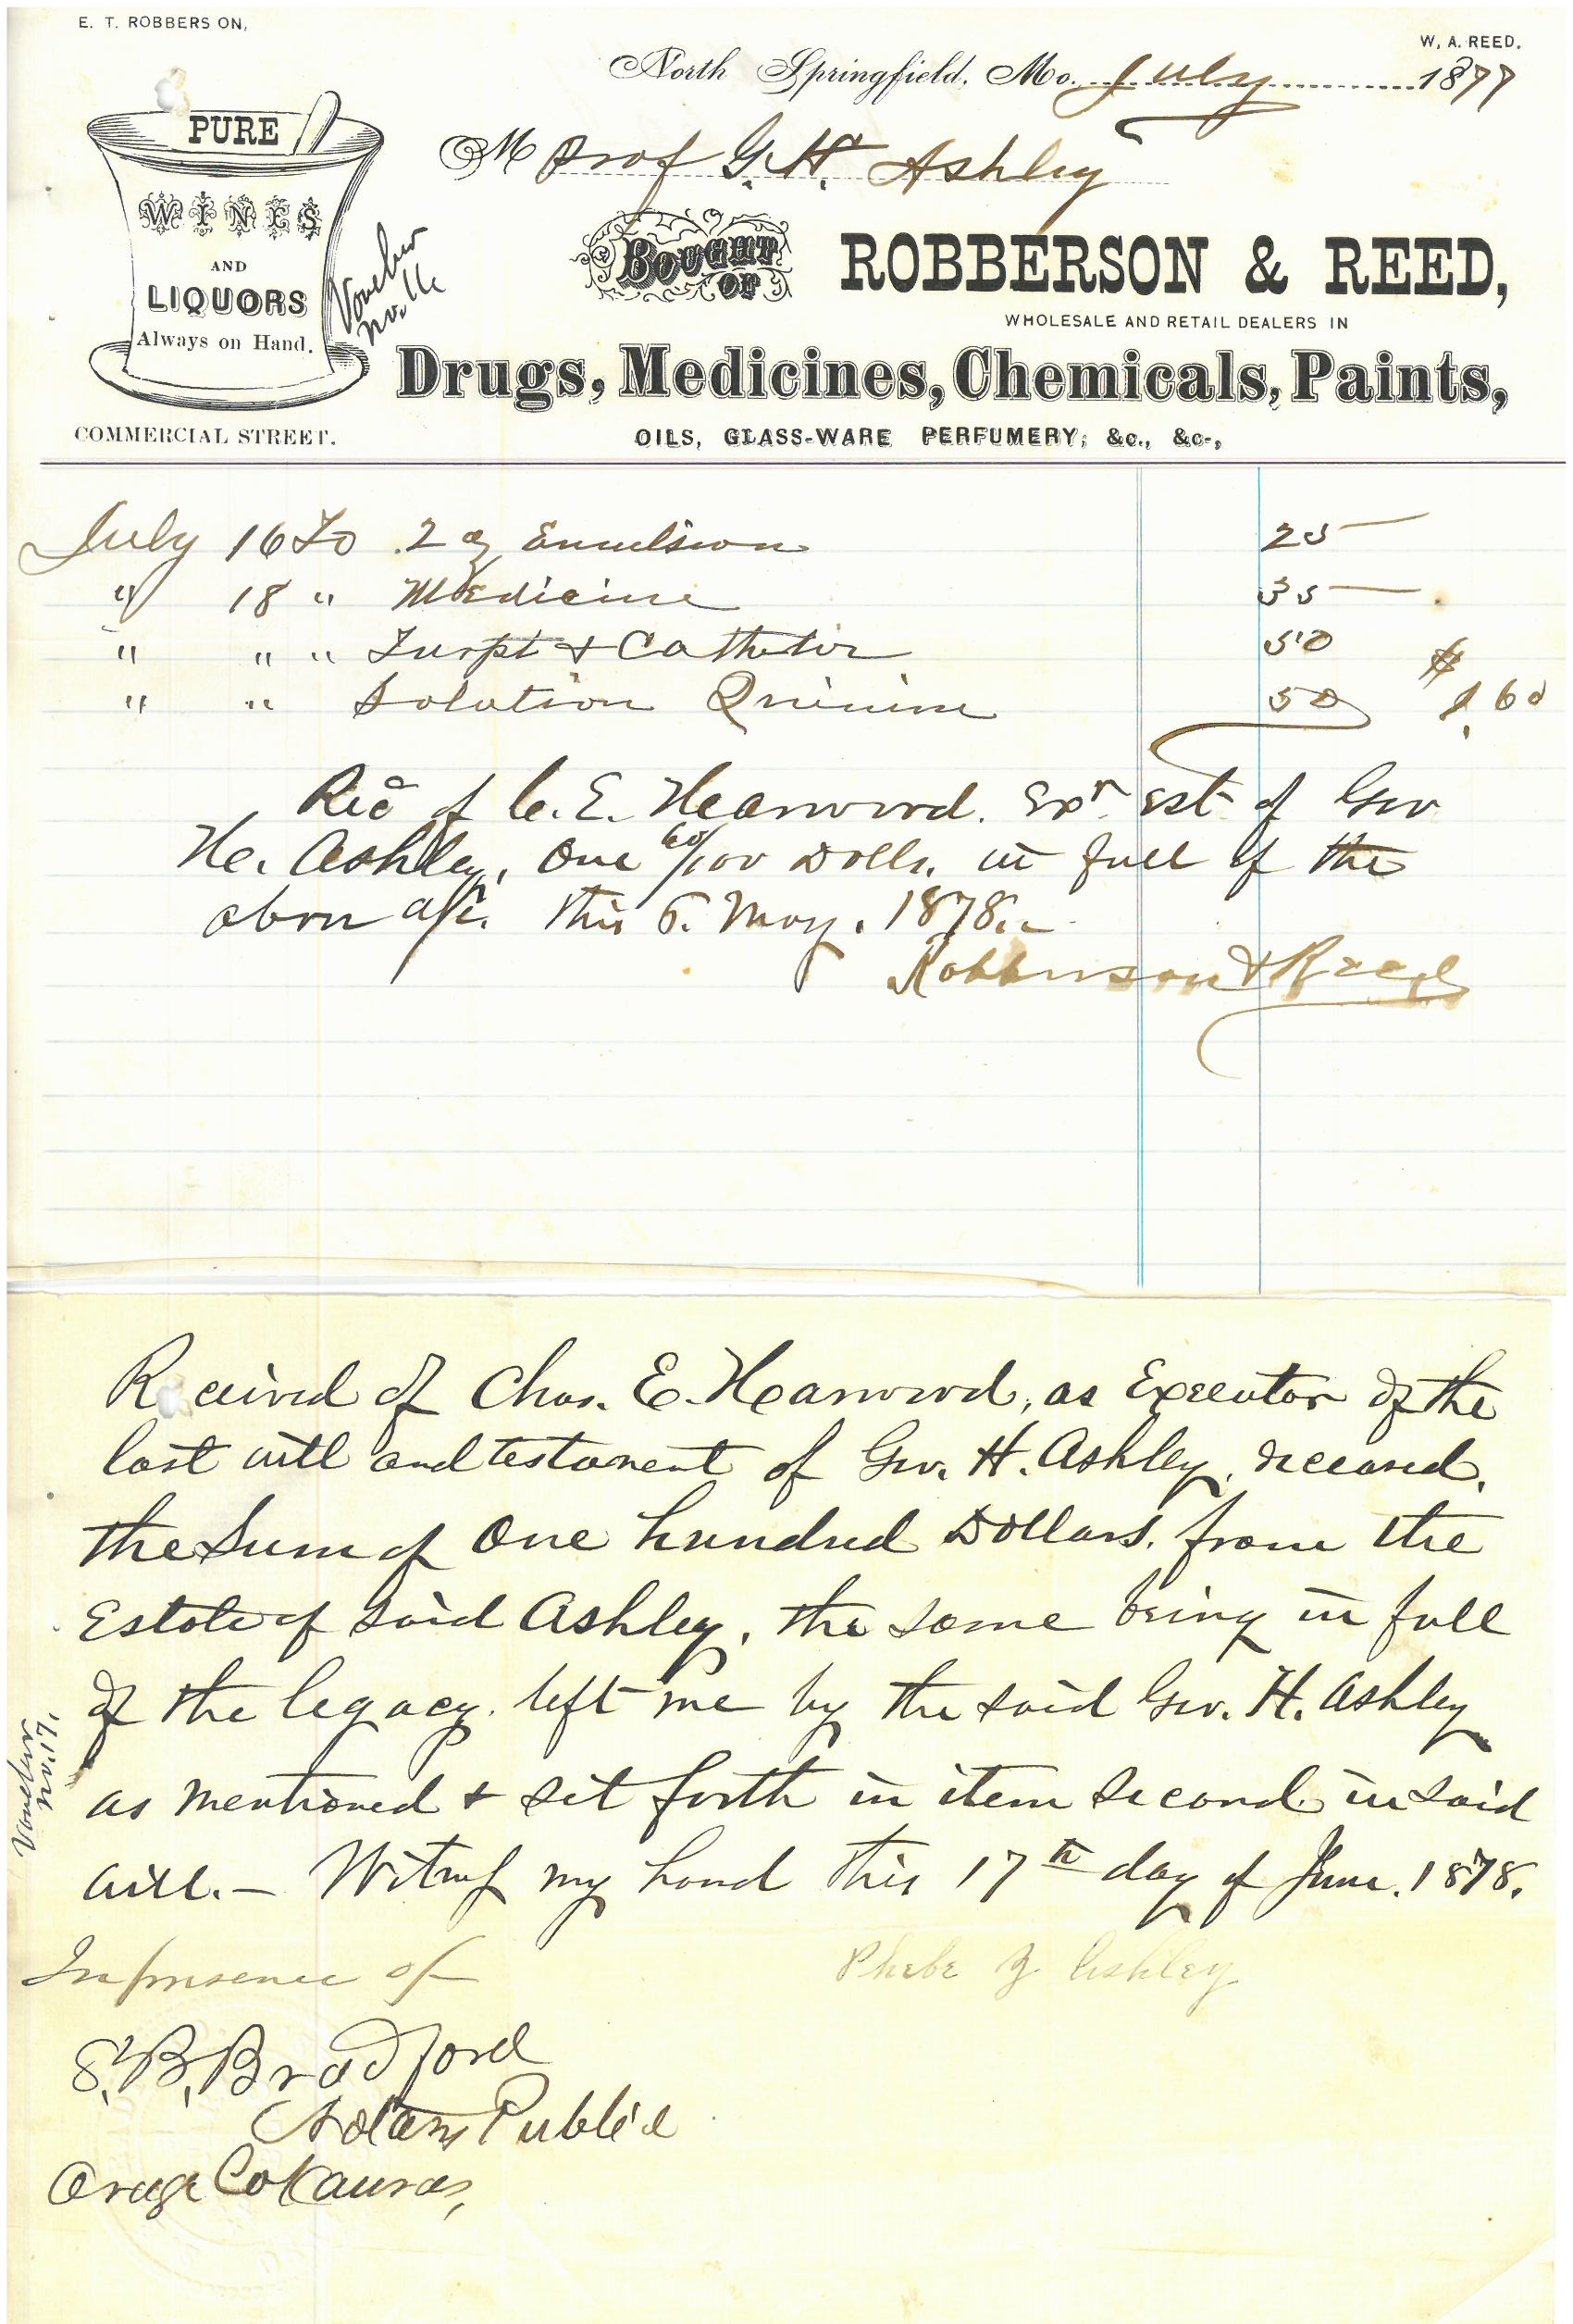 E. T. ROBBERSON,
W. A. REED.
North Springfield, Mo. July 1877
M Prof G. H. Ashley
PURE
WINES
AND
LIQUORS
Always on Hand.
COMMERCIAL STREET.
Voucher
no. 16
BOUGHT OF ROBBERSON & REED,
WHOLESALE AND RETAIL DEALERS IN
Drugs, Medicines, Chemicals, Paints,
OILS, GLASS-WARE PERFUMERY, &c., &c.,
July 16 To 2 oz Emulsion 25
" 18 " Medicine 35
" " " Turpt & Catheter 50 $
" " Solution Quinine 50 1.60
Recd of C. E. Harwood. Exr Est of Geo
H. Ashley, One 60/100 Dolls. in full of the
above a/c. this 6. May. 1878.
Robberson & Reed
Received of Chas. E. Harwood, as Executor of the
last will and testament of Geo. H. Ashley, deceased,
the Sum of One hundred Dollars. from the
Estate of said Ashley, the same being in full
of the legacy left me by the said Geo. H. Ashley
as mentioned & set forth in item second in said
will. – Witness my hand this 17th day of June. 1878.
Voucher
no. 17,
In presence of Phebe Z Ashley
S. B. Bradford
Notary Public
Osage Co Kansas,